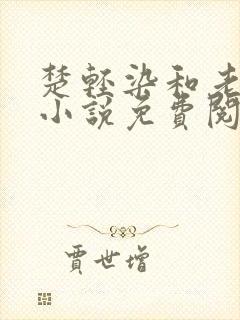 楚轻染和老
小説免費閱
賈世增